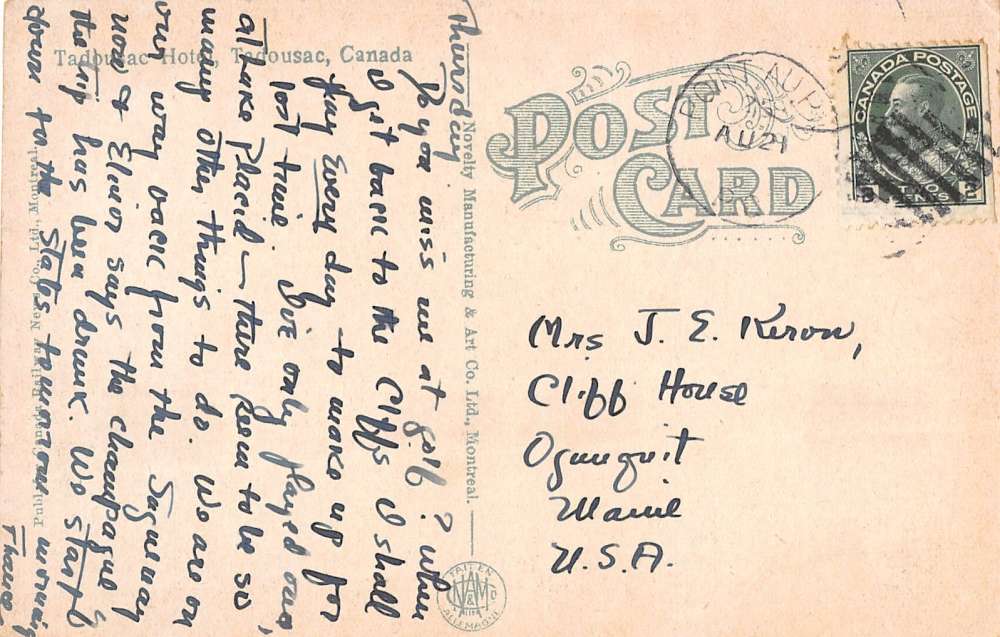 Tadousac Hotel, Tadousac, Canada
POST CARD
POINT AU PI
AU 21
CANADA POSTAGE
2 CENTS 2
Thursday
Do you miss me at golf? When
I get back to the Cliffs I shall
play every day to make up for
lost time. I've only played once
at Lake Placid – there seem to be so
many other things to do. We are on
our way back from the Saguenay
now & Elinor says the champagne of
the trip has been drunk. We start
down for the States tomorrow morning
Novelty Manufacturing & Art Co. Ltd., Montreal.
Publ. Canada Railway News Co. Ltd. Montreal
Mrs J. E. Keron,
Cliff House
Ogunquit
Maine
U.S.A.
NAM & Co
ALLEMAGNE